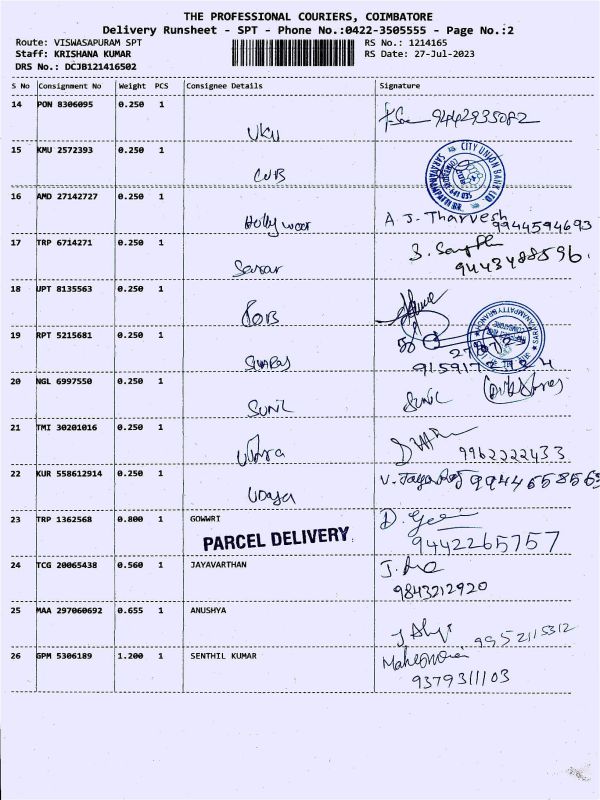 THE PROFESSIONAL COURIERS, COIMBATORE
Delivery Runsheet - SPT - Phone No.:0422-3505555 - Page No.:2
Route: VISWASAPURAM SPT RS No.: 1214165
Staff: KRISHANA KUMAR RS Date: 27-Jul-2023
DRS No.: DCJB121416502
S No Consignment No Weight PCS Consignee Details Signature
14 PON 8306095 0.250 1
VKV 9442935082
15 KMU 2572393 0.250 1
CUB CITY UNION BANK LTD.
16 AMD 27142727 0.250 1
Hollywood A J. Tharvesh
9944594693
17 TRP 6714271 0.250 1
9443488596
18 UPT 8135563 0.250 1
BOB
19 RPT 5215681 0.250 1
20 NGL 6997550 0.250 1
SUNIL SUNIL
21 TMI 30201016 0.250 1
9962222433
22 KUR 558612914 0.250 1
Udaya V. 
23 TRP 1362568 0.800 1 GOWWRI
PARCEL DELIVERY 9442265757
24 TCG 20065438 0.560 1 JAYAVARTHAN
9843212920
25 MAA 297060692 0.655 1 ANUSHYA
9952115312
26 GPM 5306189 1.200 1 SENTHIL KUMAR
9379311103